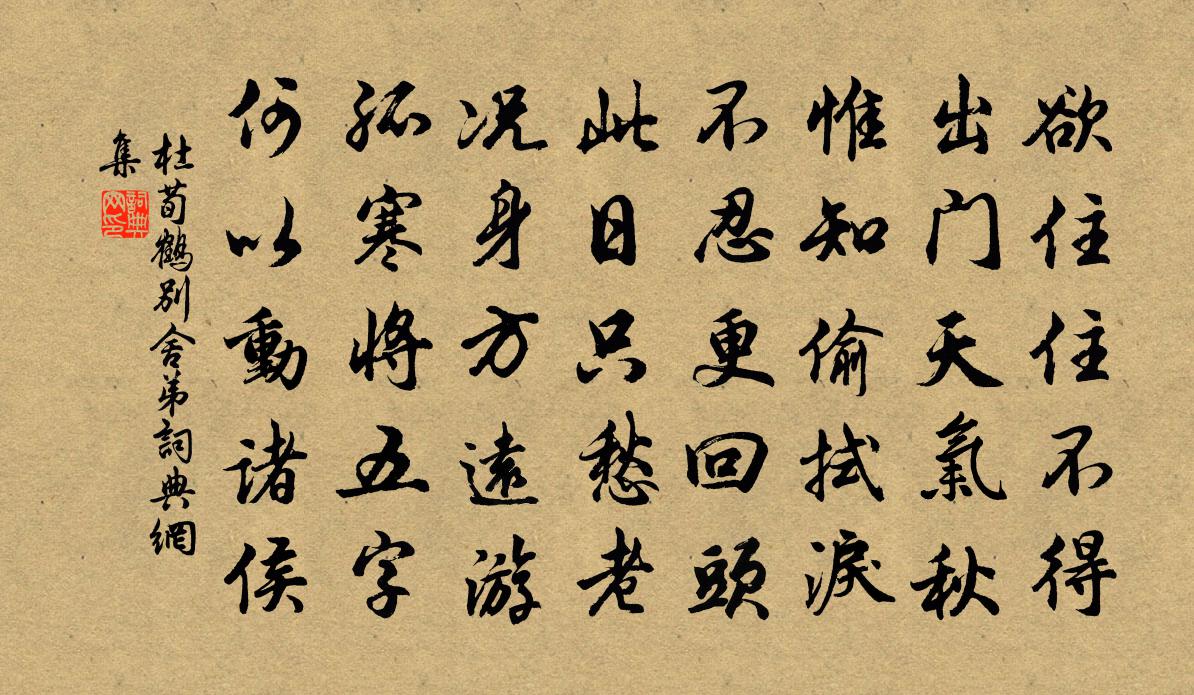 欲住住不得
出门天氣秋
惟知偷拭淚
不忍更回頭
此日只愁老
况身方遠游
孤寒將五字
何以動诸侯
杜荀鶴別舍弟詞典網
集
詞典
网印